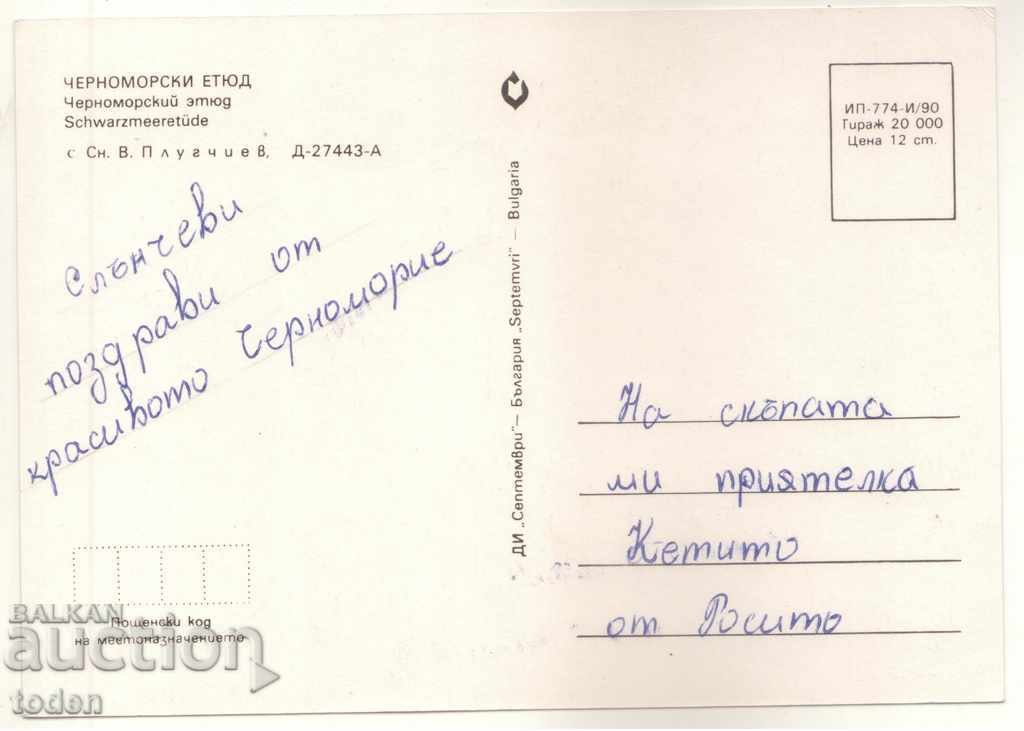 ЧЕРНОМОРСКИ ЕТЮД
Черноморский этюд
Schwarzmeeretüde
с Сн. В. Плугчиев, Д-27443-А
Слънчеви
поздрави от
красивото Черноморие
Пощенски код
на местоназначението
ДИ „Септември" – България „Septemvri" – Bulgaria
ИП-774-И/90
Тираж 20 000
Цена 12 ст.
На скъпата
ми приятелка
Кетито
от Росито
BALKAN
auction
toden